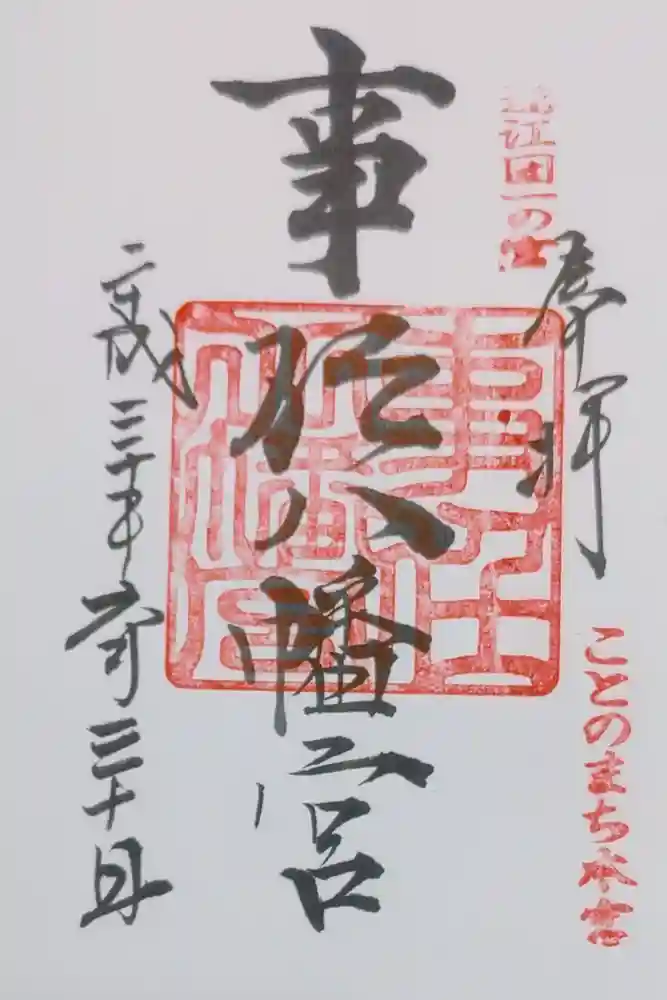 遠江国一の宮
奉拝
ことのまち
事任八幡宮
事任
八幡宮
平成三十年六月三十日